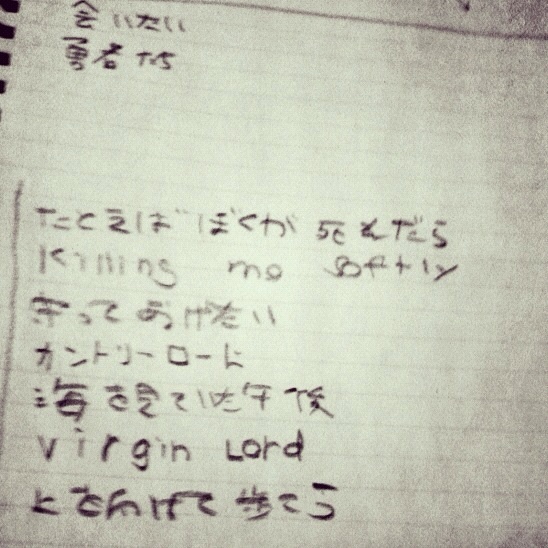 会いたい
勇者たち
たとえばぼくが死んだら
Killing me softly
守ってあげたい
カントリーロード
海を見ていた午後
virgin Lord
上を向けて歩こう